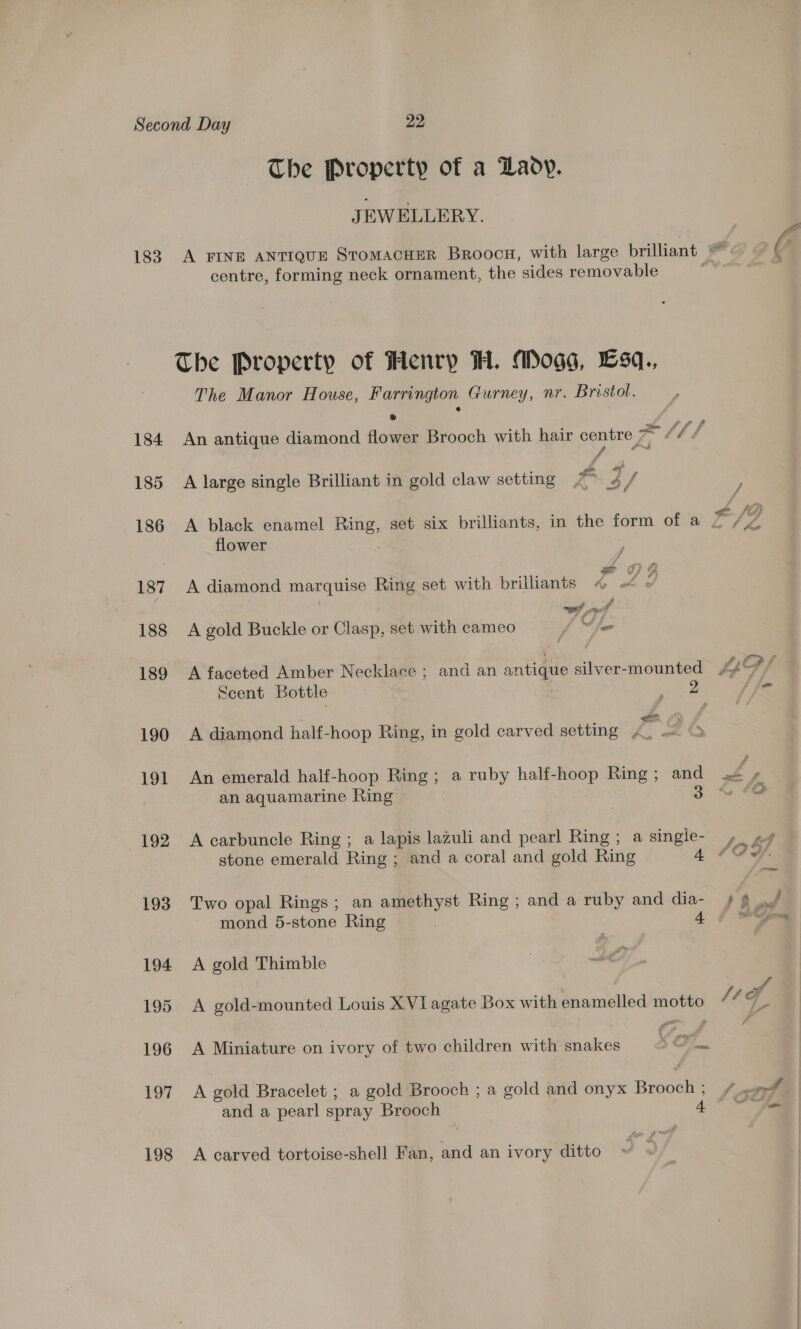 Second Day 22
The Property of a Lady.
JEWELLERY.
183 A FINE ANTIQUE STOMACHER BROOCH, with large brilliant
centre, forming neck ornament, the sides removable
The Property of Henry H. Mogg, Esq.,
The Manor House, Farrington Gurney, nr. Bristol.
184 An antique diamond flower Brooch with hair centre
185 A large single Brilliant in gold claw setting
186 A black enamel Ring, set six brilliants, in the form of a
flower
187 A diamond marquise Ring set with brilliants
188 A gold Buckle or Clasp, set with cameo
189 A faceted Amber Necklace ; and an antique silver-mounted
Scent Bottle 2
190 A diamond half-hoop Ring, in gold carved setting
191 An emerald half-hoop Ring ; a ruby half-hoop Ring ; and
an aquamarine Ring 3
192 A carbuncle Ring ; a lapis lazuli and pearl Ring ; a single-
stone emerald Ring ; and a coral and gold Ring 4
193 Two opal Rings ; an amethyst Ring ; and a ruby and dia-
mond 5-stone Ring 4
194 A gold Thimble
195 A gold-mounted Louis XVI agate Box with enamelled motto
196 A Miniature on ivory of two children with snakes
197 A gold Bracelet ; a gold Brooch ; a gold and onyx Brooch ;
and a pearl spray Brooch 4
198 A carved tortoise-shell Fan, and an ivory ditto